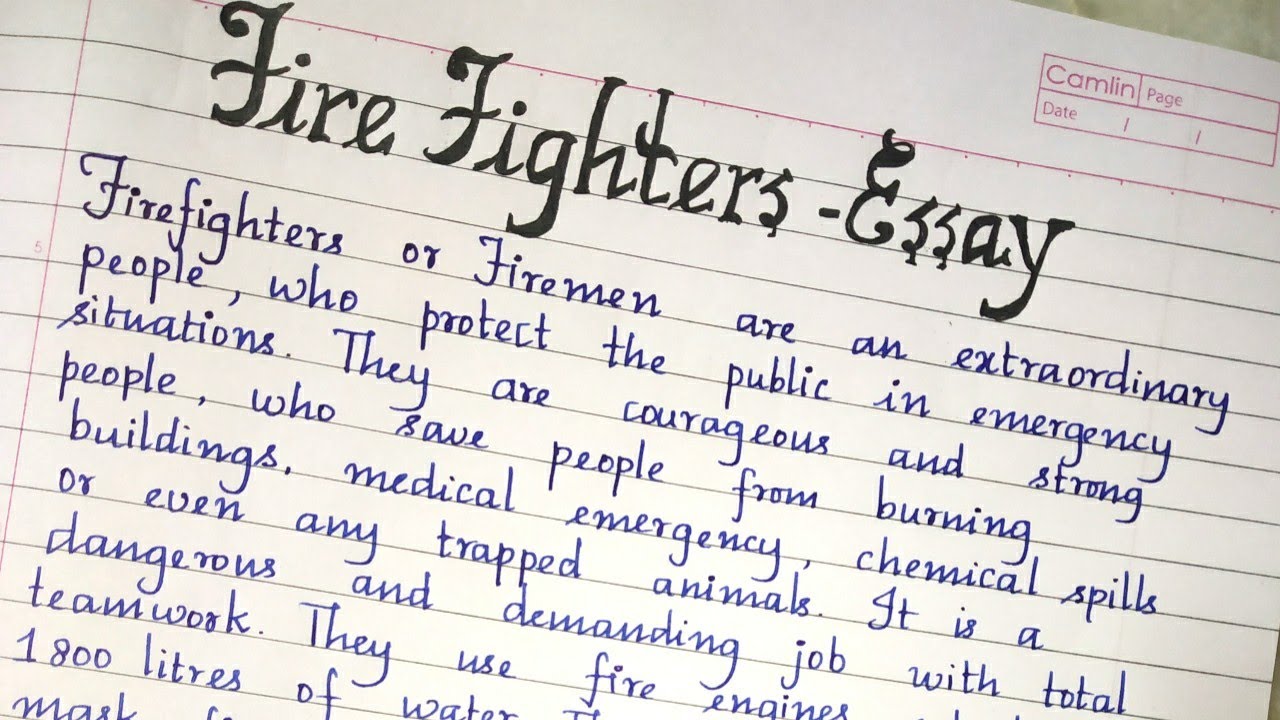 Fire Fighters - Essay
Camlin Page
Date / /
5
Firefighters or Firemen are an extraordinary
people, who protect the public in emergency
situations. They are courageous and strong
people, who save people from burning
buildings, medical emergency, chemical spills
or even any trapped animals. It is a
dangerous and demanding job with total
teamwork. They use fire engines
1800 litres of water
mask